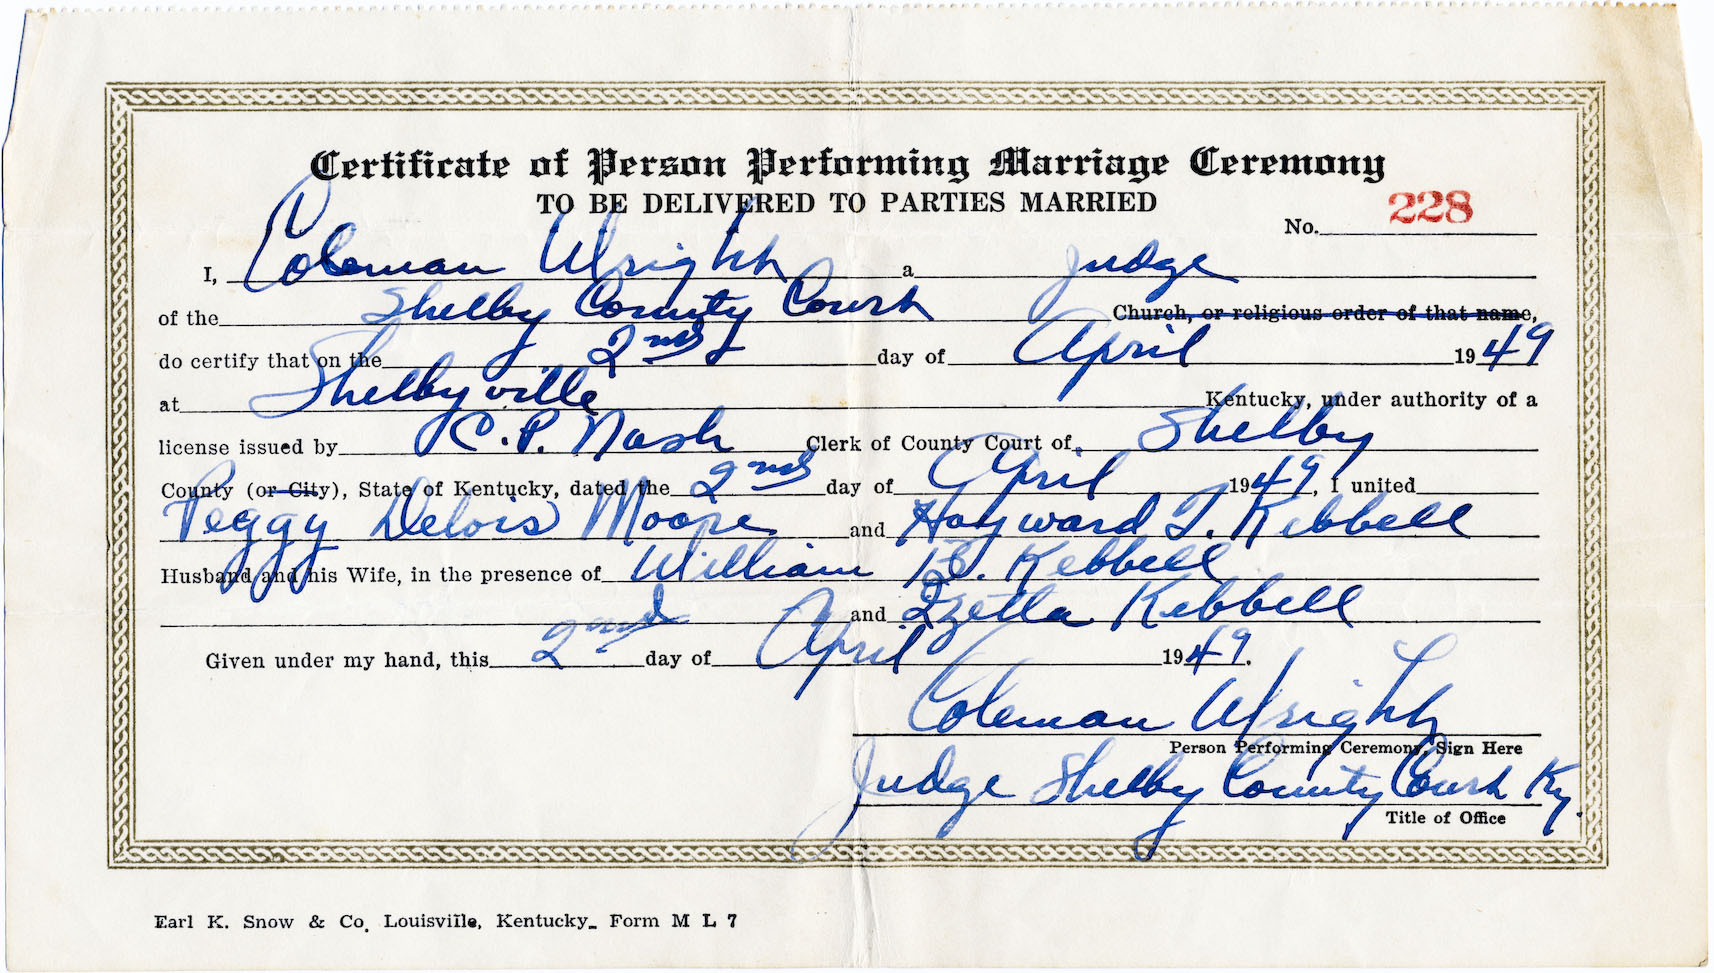 Certificate of Person Performing Marriage Ceremony
TO BE DELIVERED TO PARTIES MARRIED
No. 228
I, Coleman Wright a Judge
of the Shelby County Court Church, or religious order of that name,
do certify that on the 2nd day of April 1949
at Shelbyville Kentucky, under authority of a
license issued by C.P. Nash Clerk of County Court of Shelby
County (or City), State of Kentucky, dated the 2nd day of April 1949, I united
Peggy Delois Moore and Hayward T. Kebbell
Husband and his Wife, in the presence of William B. Kebbell
and Izetta Kebbell
Given under my hand, this 2nd day of April 1949.
Coleman Wright
Person Performing Ceremony, Sign Here
Judge Shelby County Court Ky.
Title of Office
Earl K. Snow & Co. Louisville, Kentucky_ Form M L 7